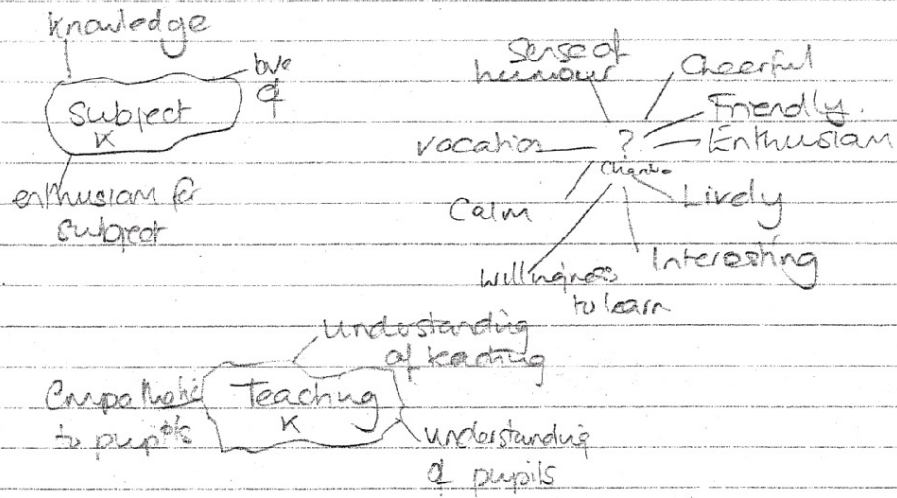 Knowledge
love
of
Subject
K
enthusiasm for
subject
Sense of
humour
Cheerful
Friendly.
Enthusiasm
vocation
?
Calm
Lively
Interesting
willingness
to learn
Understanding
of teaching
Empathetic
to pupils
Teaching
K
understanding
of pupils